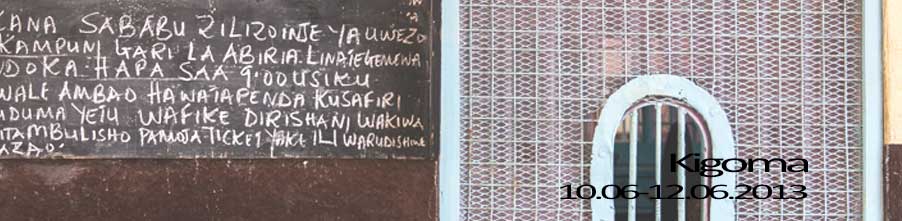 KANA SABABU ZILIZO NJE YA UWEZO
KAMPUNI GARI LA ABIRIA LINATEGEMEWA
DOKA HAPA SAA 9:00 USIKU
WALE AMBAO HAWATAPENDA KUSAFIRI
UDUMA YETU WAFIKE DIRISHANI WAKIWA
ITAMBULISHO PAMOJA TICKET YAKE ILI WARUDISHIWE
AZAO.
Kigoma
10.06-12.06.2013